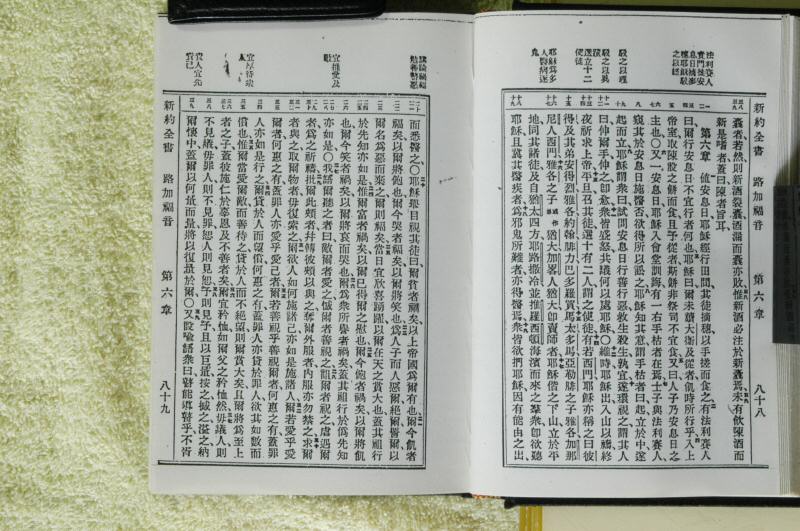 新約全書 路加福音 第六章 八十八
法利賽人
責門徒安
息日摘麥
穗耶穌駁
之以經
駁之以異
蹟
選立十二
使徒
耶穌爲多
人醫病逐
鬼
囊者若然則新酒裂囊酒漏而囊亦敗惟新酒必注於新囊焉未有飲陳酒而
新是嗜者蓋曰陳者旨耳
第六章 値安息日耶穌經行田間其徒摘穗以手搓而食之有法利賽人
曰爾行安息日不宜行者何也耶穌曰爾未讀大衛及從者飢時所行乎入上
帝室取陳設之餅而食且予從者斯餅非祭司不宜食又曰人子乃安息日之
主也〇又一安息日耶穌入會堂訓誨有一右手枯者在焉士子與法利賽人
窺其於安息日施醫否欲得所以訟之耶穌知其意謂手枯者曰起立於中遂
起而立耶穌謂衆曰試問安息日行善行惡救生殺生孰宜遂環視之謂其人
曰伸爾手伸之卽愈衆皆盛怒共議何以處耶穌〇維時耶穌出入山以禱終
夜祈求上帝平旦召其徒選十有二人謂之使徒有若西門耶穌亦稱之曰彼
得及其弟安得烈雅各約翰腓力巴多羅買馬太多馬亞勒腓之子雅各加那
尼人西門雅各之子猶大加畧人猶大卽賣師者耶穌偕之下山立於平
地同其諸徒及自猶太四方耶路撒冷並推羅西頓海濱而來之羣衆卽欲聽
耶穌且冀其醫疾者爲邪鬼所難者亦得醫焉衆皆欲捫耶穌因有能由之出
新約全書 路加福音 第六章 八十九
講論禍福
勉善警惡
宜推愛及
敵
責人宜先
責己
而悉醫之〇耶穌舉目視其徒曰爾貧者福矣以上帝國爲爾有也爾今飢者
福矣以爾將飽也爾今哭者福矣以爾將笑也爲人子而人惡爾絕爾詈爾以
爾名爲惡而棄之爾則福矣當日宜欣喜踴躍以爾在天之賞大也蓋其祖行
於先知亦如是惟爾富者禍矣以爾已得爾之慰也爾今飽者禍矣以爾將飢
也爾今笑者禍矣以爾將哀而哭也爾爲衆所譽者禍矣蓋其祖行於僞先知
亦如是〇我語爾聽之者曰敵爾者愛之憾爾者善視之詛爾者祝之虐遇爾
者爲之祈禱批爾此頰者幷轉彼頰以與之奪爾外服者內服亦勿禁之求爾
者與之取爾物者毋復索之爾欲人如何施諸己亦如是施諸人爾若愛乎愛
爾者何惠之有蓋罪人亦愛乎愛己者爾若善視乎善視爾者何惠之有蓋罪
人亦如是行之爾貸於人而望償何惠之有蓋罪人亦貸於罪人欲其如數而
償也惟爾當愛爾敵而善待之貸於人而不絕望則爾賞大矣且爾將爲至上
者之子蓋彼施仁於辜恩及不善者矣爾宜矜恤如爾父之矜恤然毋議人則
不見議毋罪人則不見罪恕人則見恕予則見予且以巨量按之撼之溢之納
爾懷中蓋爾以何量而量將以復量於爾〇又設喻語衆曰瞽能導瞽乎不皆